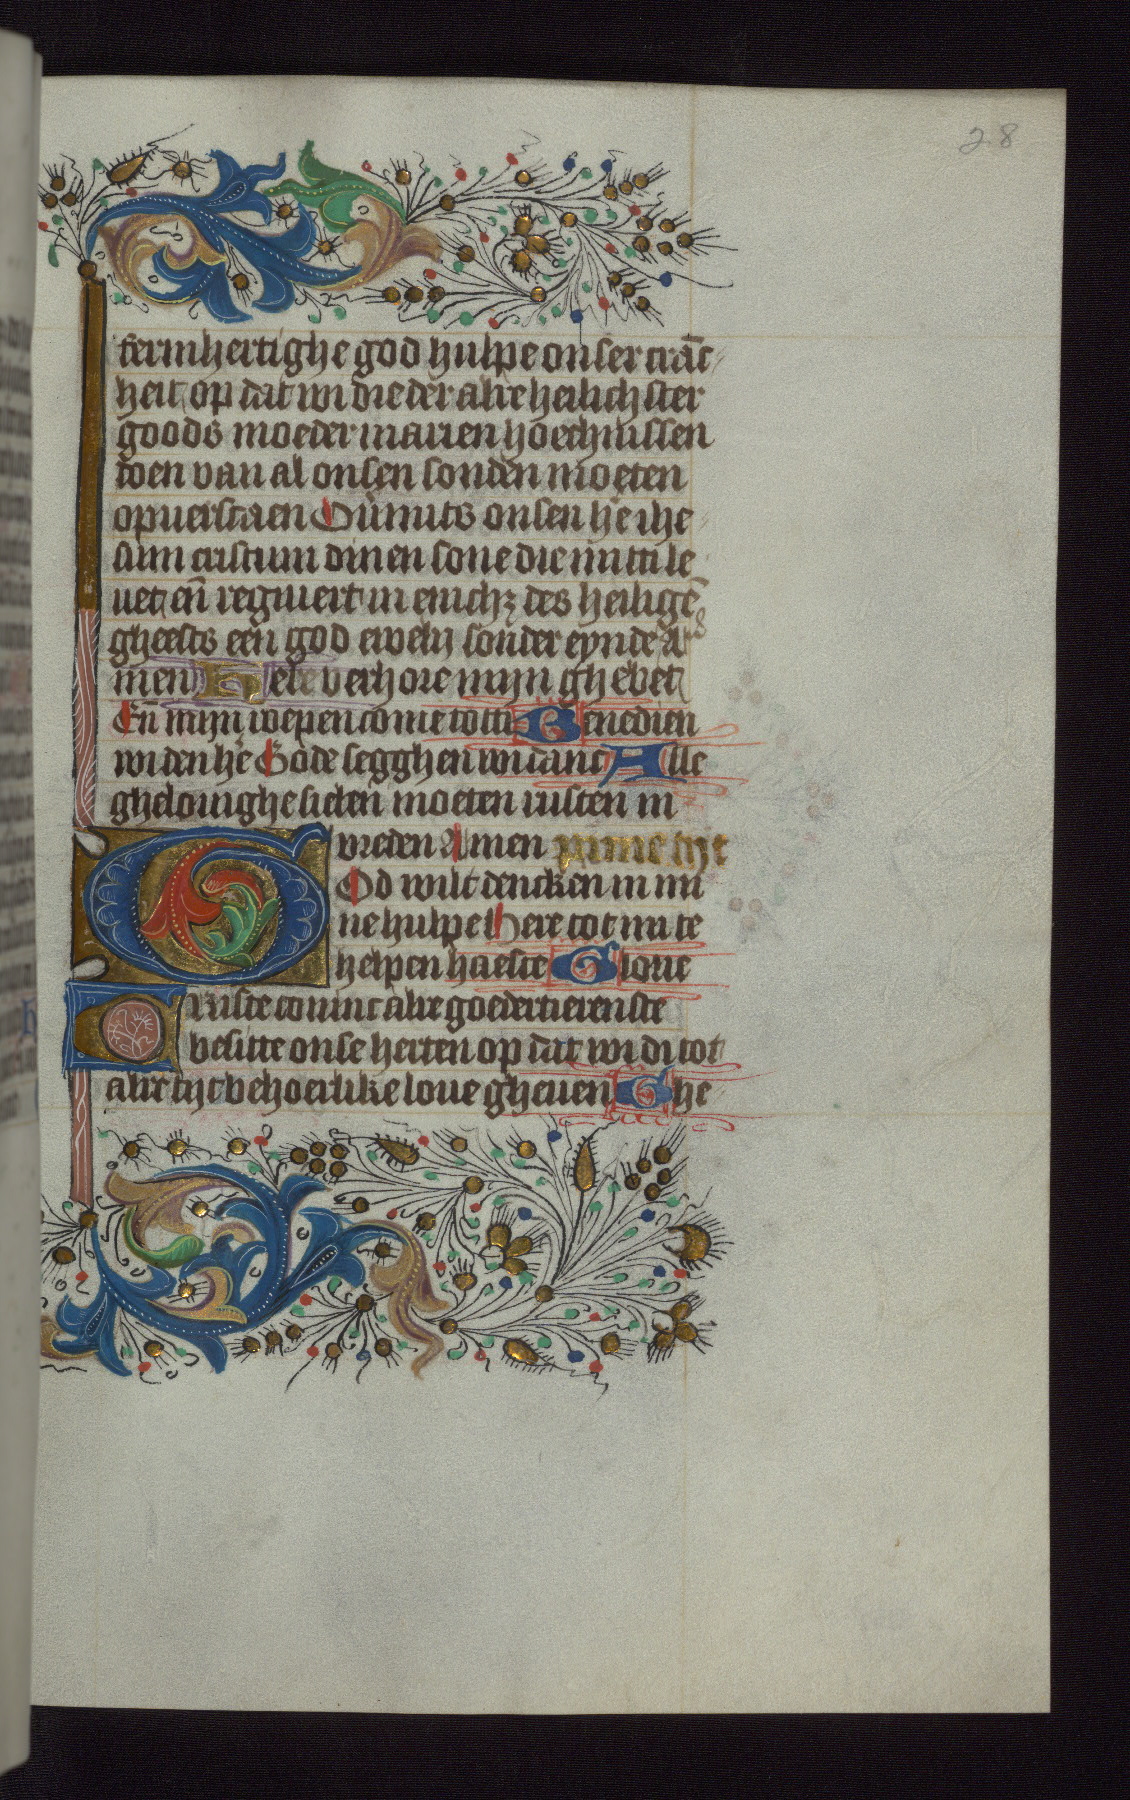 28
fermhertighe god hulpe onser cranc
heit op dat wi die der alre heilichster
goods moeder marien hoechnissen
doen van al onsen sonden moeten
opuerstaen Ouͥmits onsen he ihe
sum cristum dinen sone die mitti le
uet en̄ regniert in enichz des heilige̅
gheests een god ewelı sonder eynde A
men Here verhore mijn ghebet
En̄ mijn roepen come totti Benedien
wi den he̅ Gode segghen wi danc Alle
ghelouighe sielen moeten rusten in
vreden Amen prime tijt
God wilt dencken in mi
ne hulpe Here tot mi te
helpen haeste Glorie
Criste coninc alre goedertierenste
besitte onse herten op dat wi di tot
alre tijt behoerlike loue gheuen Ghe